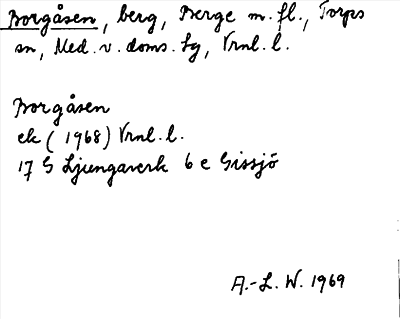 Borgåsen, berg, Berge m.fl., Torps
sn, Med. v. doms. sg, Vrnl. l.
Borgåsen
ek (1968) Vrnl. l.
17 G Ljungaverk 6 e Gissjö
A.-L. W. 1969